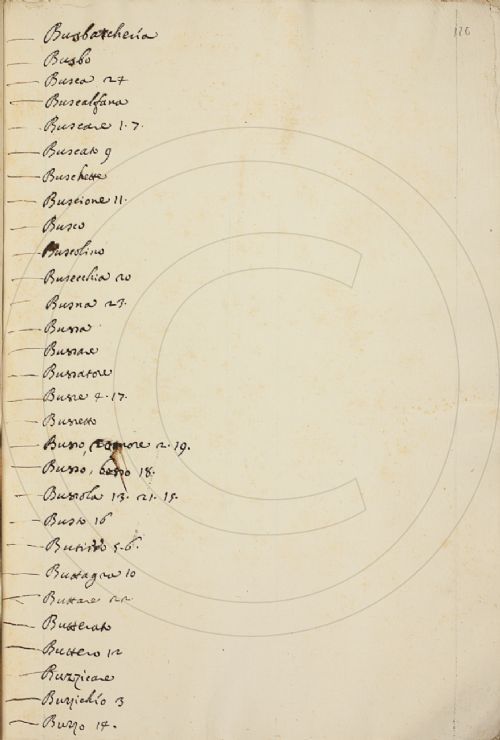 126
Busbaccheria
Busbo
Busca 27
Buscalfana
Buscare 1. 7.
Buscato 9
Buschette
Buscione 11.
Busco
Buscolino
Busecchia 20
Busna 23.
Bussa
Bussare
Bussatore
Busse 4. 17.
Bussetto
Busso, romore 2. 19.
Busso, bosso 18.
Bussola 13. 21. 15.
Busto 16
5. 6.
Buttagra 10
Buttare 22
Butterato
Buttero 12
Buzzicare
Buzzichio 3
Buzzo 14.